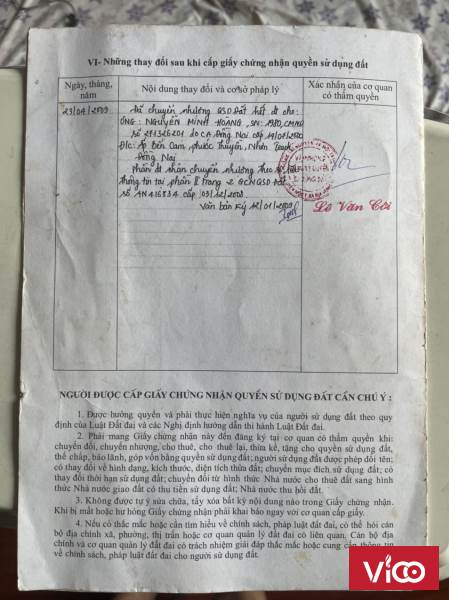 VI- Những thay đổi sau khi cấp giấy chứng nhận quyền sử dụng đất
Ngày, tháng, năm
Nội dung thay đổi và cơ sở pháp lý
Xác nhận của cơ quan có thẩm quyền
23/01/2009
Đã chuyển nhượng QSD đất hết đt cho:
ÔNG: NGUYỄN MINH HOÀNG, SN: 1980, CMND
số 271326201 do CA Đồng Nai cấp
Đ/c: Ấp Bến Cam, Phước Thiền, Nhơn Trạch
Đồng Nai
Phần đất nhận chuyển nhượng theo
thông tin tại phần II trang 2 GCNQSD đất
số AN 416834 cấp
Văn bản ký
Lê Văn Còi
NGƯỜI ĐƯỢC CẤP GIẤY CHỨNG NHẬN QUYỀN SỬ DỤNG ĐẤT CẦN CHÚ Ý :
1. Được hưởng quyền và phải thực hiện nghĩa vụ của người sử dụng đất theo quy
định của Luật Đất đai và các Nghị định hướng dẫn thi hành Luật Đất đai.
2. Phải mang Giấy chứng nhận này đến đăng ký tại cơ quan có thẩm quyền khi:
chuyển đổi, chuyển nhượng, cho thuê, cho thuê lại, thừa kế, tặng cho quyền sử dụng đất,
thế chấp, bảo lãnh, góp vốn bằng quyền sử dụng đất; người sử dụng đất được phép đổi tên;
có thay đổi về hình dạng, kích thước, diện tích thửa đất; chuyển mục đích sử dụng đất; có
thay đổi thời hạn sử dụng đất; chuyển đổi từ hình thức Nhà nước cho thuê đất sang hình
thức Nhà nước giao đất có thu tiền sử dụng đất; Nhà nước thu hồi đất.
3. Không được tự ý sửa chữa, tẩy xóa bất kỳ nội dung nào trong Giấy chứng nhận.
Khi bị mất hoặc hư hỏng Giấy chứng nhận phải khai báo ngay với cơ quan cấp giấy.
4. Nếu có thắc mắc hoặc cần tìm hiểu về chính sách, pháp luật đất đai, có thể hỏi cán
bộ địa chính xã, phường, thị trấn hoặc cơ quan quản lý đất đai có liên quan. Cán bộ địa
chính và cơ quan quản lý đất đai có trách nhiệm giải đáp thắc mắc hoặc cung cấp thông tin
về chính sách, pháp luật đất đai cho người sử dụng đất.
ViCO